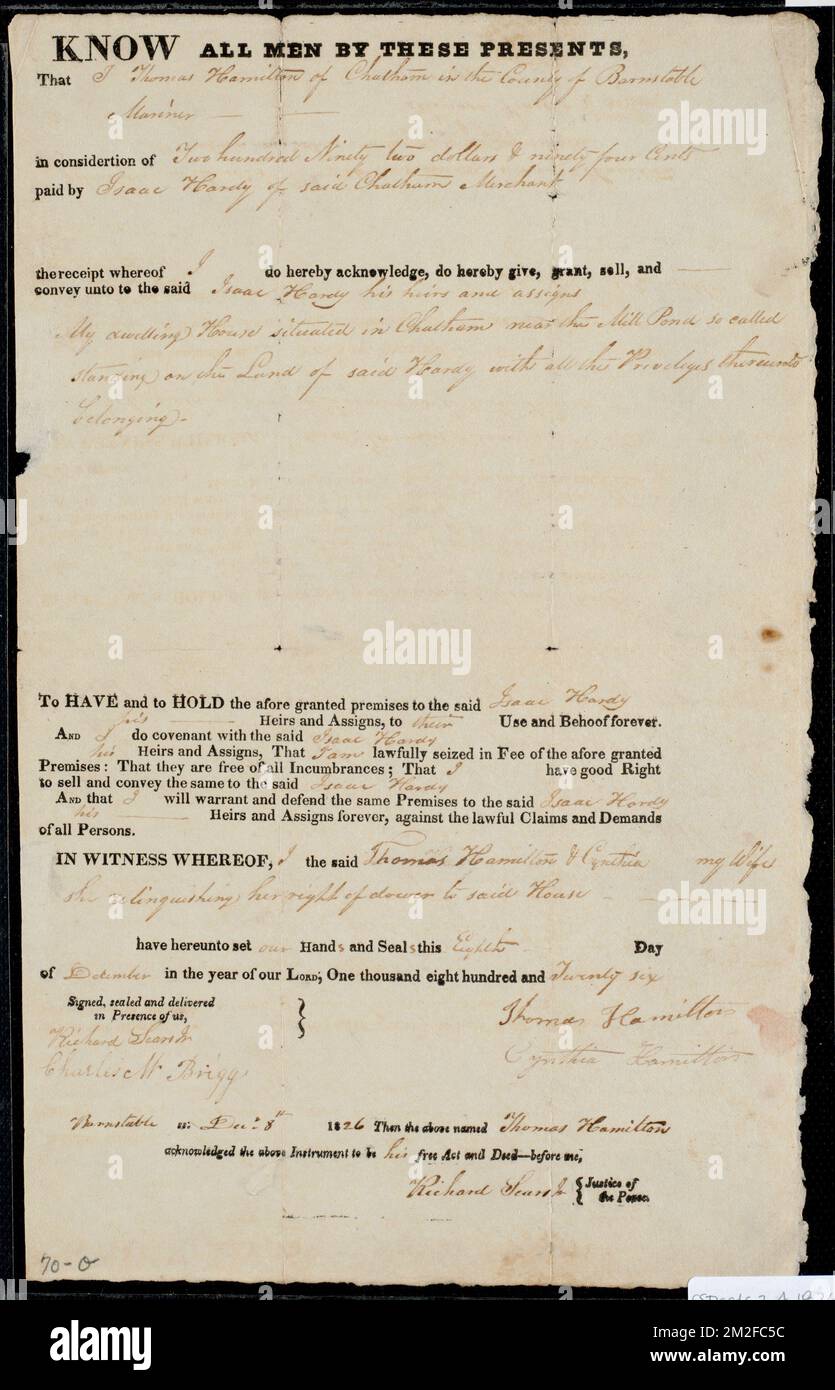 KNOW ALL MEN BY THESE PRESENTS,
That I Thomas Hamilton of Chatham in the County of Barnstable
Mariner
in considertion of Two hundred Ninety two dollars & ninety four Cents
paid by Isaac Hardy of said Chatham Merchant
the receipt whereof I do hereby acknowledge, do hereby give, grant, sell, and
convey unto to the said Isaac Hardy his heirs and assigns
My dwelling House situated in Chatham near the Mill Pond so called
standing on the Land of said Hardy with all the Priveleges thereunto
belonging.
To HAVE and to HOLD the afore granted premises to the said Isaac Hardy
his Heirs and Assigns, to their Use and Behoof forever.
AND I do covenant with the said Isaac Hardy
his Heirs and Assigns, That I am lawfully seized in Fee of the afore granted
Premises: That they are free of all Incumbrances; That I have good Right
to sell and convey the same to the said Isaac Hardy
AND that I will warrant and defend the same Premises to the said Isaac Hardy
his Heirs and Assigns forever, against the lawful Claims and Demands
of all Persons.
IN WITNESS WHEREOF, I the said Thomas Hamilton & Cynthia my Wife
she relinquishing her right of dower to said House
have hereunto set our Hands and Seals this Eighth Day
of December in the year of our LORD, One thousand eight hundred and Twenty six
Signed, sealed and delivered
in Presence of us,
Richard Sears Jr
Charles M Brigg
Thomas Hamilton
Cynthia Hamilton
Barnstable ss. Decr 8th 1826 Then the above named Thomas Hamilton
acknowledged the above Instrument to be his free Act and Deed—before me,
Richard Sears Jr { Justice of
the Peace.
70-O
alamy
Image ID: 2M2FC5C
www.alamy.com